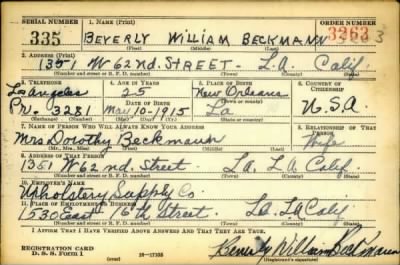 SERIAL NUMBER 1. NAME (Print) ORDER NUMBER
335 BEVERLY WILLIAM BECKMANN 3363
(First) (Middle) (Last)
2. ADDRESS (Print)
1351 W 62ND. STREET - L.A. Calif.
(Number and street or R. F. D. number) (Town) (County) (State)
3. TELEPHONE 4. AGE IN YEARS 5. PLACE OF BIRTH 6. COUNTRY OF CITIZENSHIP
Los Angeles 25 New Orleans
DATE OF BIRTH (Town or county)
Pv. 3281 Mar 10-1915 La U.S.A.
(Exchange) (Number) (Mo.) (Day) (Yr.) (State or country)
7. NAME OF PERSON WHO WILL ALWAYS KNOW YOUR ADDRESS 8. RELATIONSHIP OF THAT PERSON
Mrs Dorothy Beckmann Wife
(Mr., Mrs., Miss) (First) (Middle) (Last)
9. ADDRESS OF THAT PERSON
1351 W 62nd. Street La. L.A. Calif.
(Number and street or R. F. D. number) (Town) (County) (State)
10. EMPLOYER'S NAME
Upholstery Supply Co.
11. PLACE OF EMPLOYMENT OR BUSINESS
1530 East 16th Street. La. L.A. Calif
(Number and street or R. F. D. number) (Town) (County) (State)
I AFFIRM THAT I HAVE VERIFIED ABOVE ANSWERS AND THAT THEY ARE TRUE.
REGISTRATION CARD
D. S. S. FORM 1 (over) 16-17105 Beverly William Beckmann
(Registrant's signature)